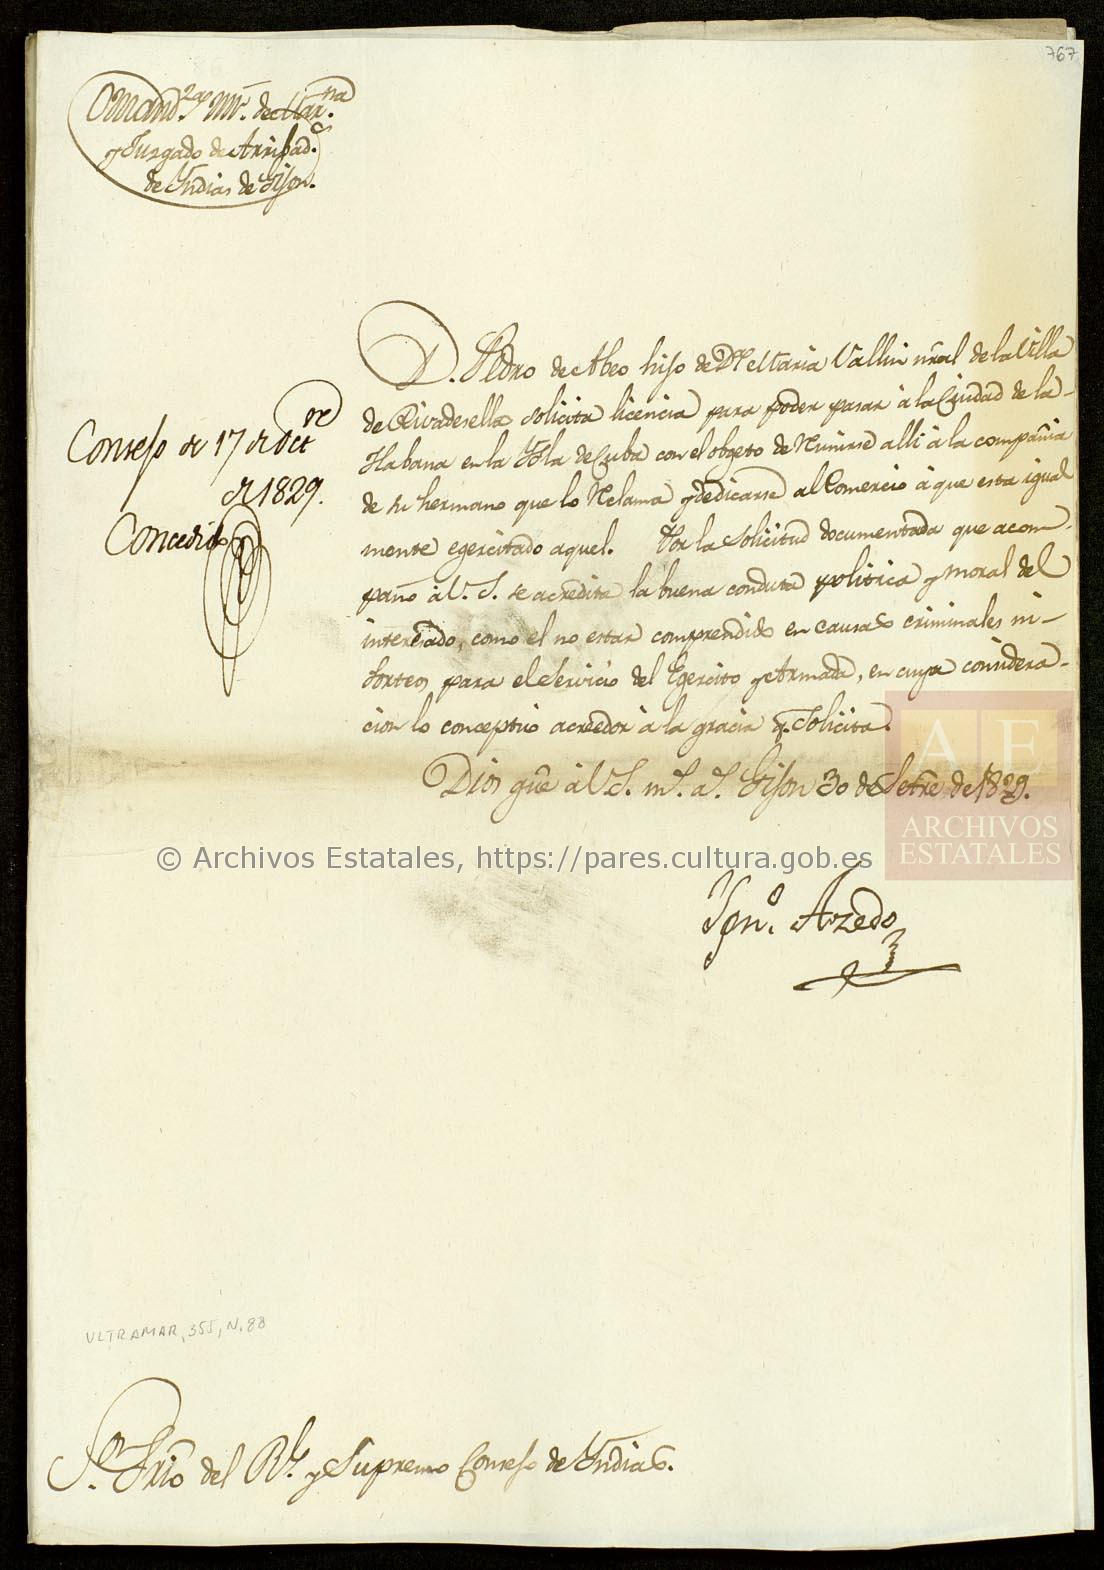 767
Comand.ᵃ y Mrᵒ. de Mar.ⁿᵃ
y Juzgado de Arribad.ˢ
de Yndias de Gijon.
D. Pedro de Abeo hijo de Dª Maria Vallin nral de la Villa
de Rivadesella solicita licencia para poder pasar à la Ciudad de la
Habana en la Ysla de Cuba con el obgeto de Reunirse alli à la compañia
de su hermano que lo Reclama y dedicarse al Comercio à que esta igual
mente egercitado aquel. Por la Solicitud documentada que acom-
paño à V. S. se acredita la buena conduta politica y moral del
interesado, como el no estar comprendido en causas criminales ni
sorteos para el Servicio del Egercito y Armada, en cuya considera-
cion lo conceptuo acreedor à la gracia q. Solicita.
Dios gue à V. S. ms. as. Gijon 30 de Setre. de 1829.
Ygnº. Azedo
Consejo de 17 de Octᵇʳᵉ
de 1829.
Concedido
A E
ARCHIVOS
ESTATALES
© Archivos Estatales, https://pares.cultura.gob.es
ULTRAMAR, 355, N. 88
Sᵒʳ. Srio del Rl. y Supremo Consejo de Yndias.